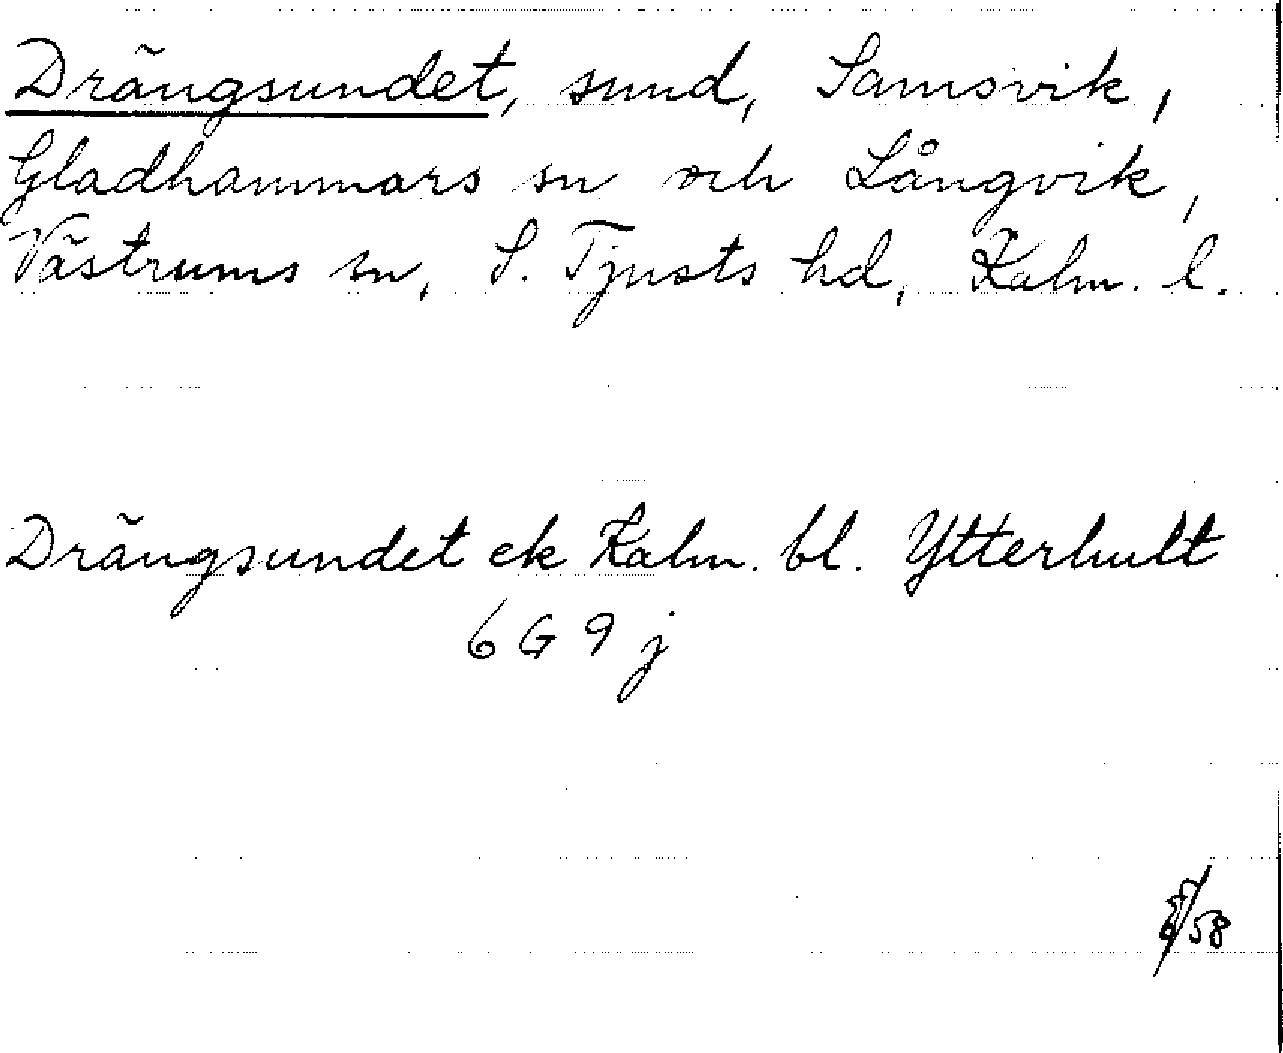 Drängsundet, sund, Samsvik,
Gladhammars sn och Långvik,
Västrums sn, S. Tjusts hd, Kalm. l.
Drängsundet ek Kalm. bl. Ytterhult
6 G 9 j
/58